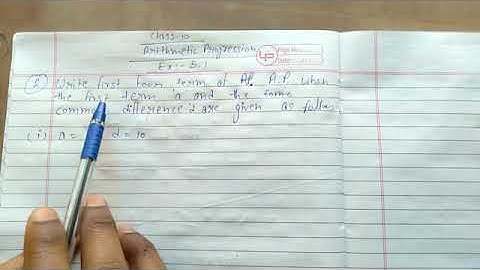 Class-10
Arithmetic Progression
Ex:- 5.1
(2) Write first four term of the A.P when
the first term a and the
common difference d are given as follow
(i) a = d = 10